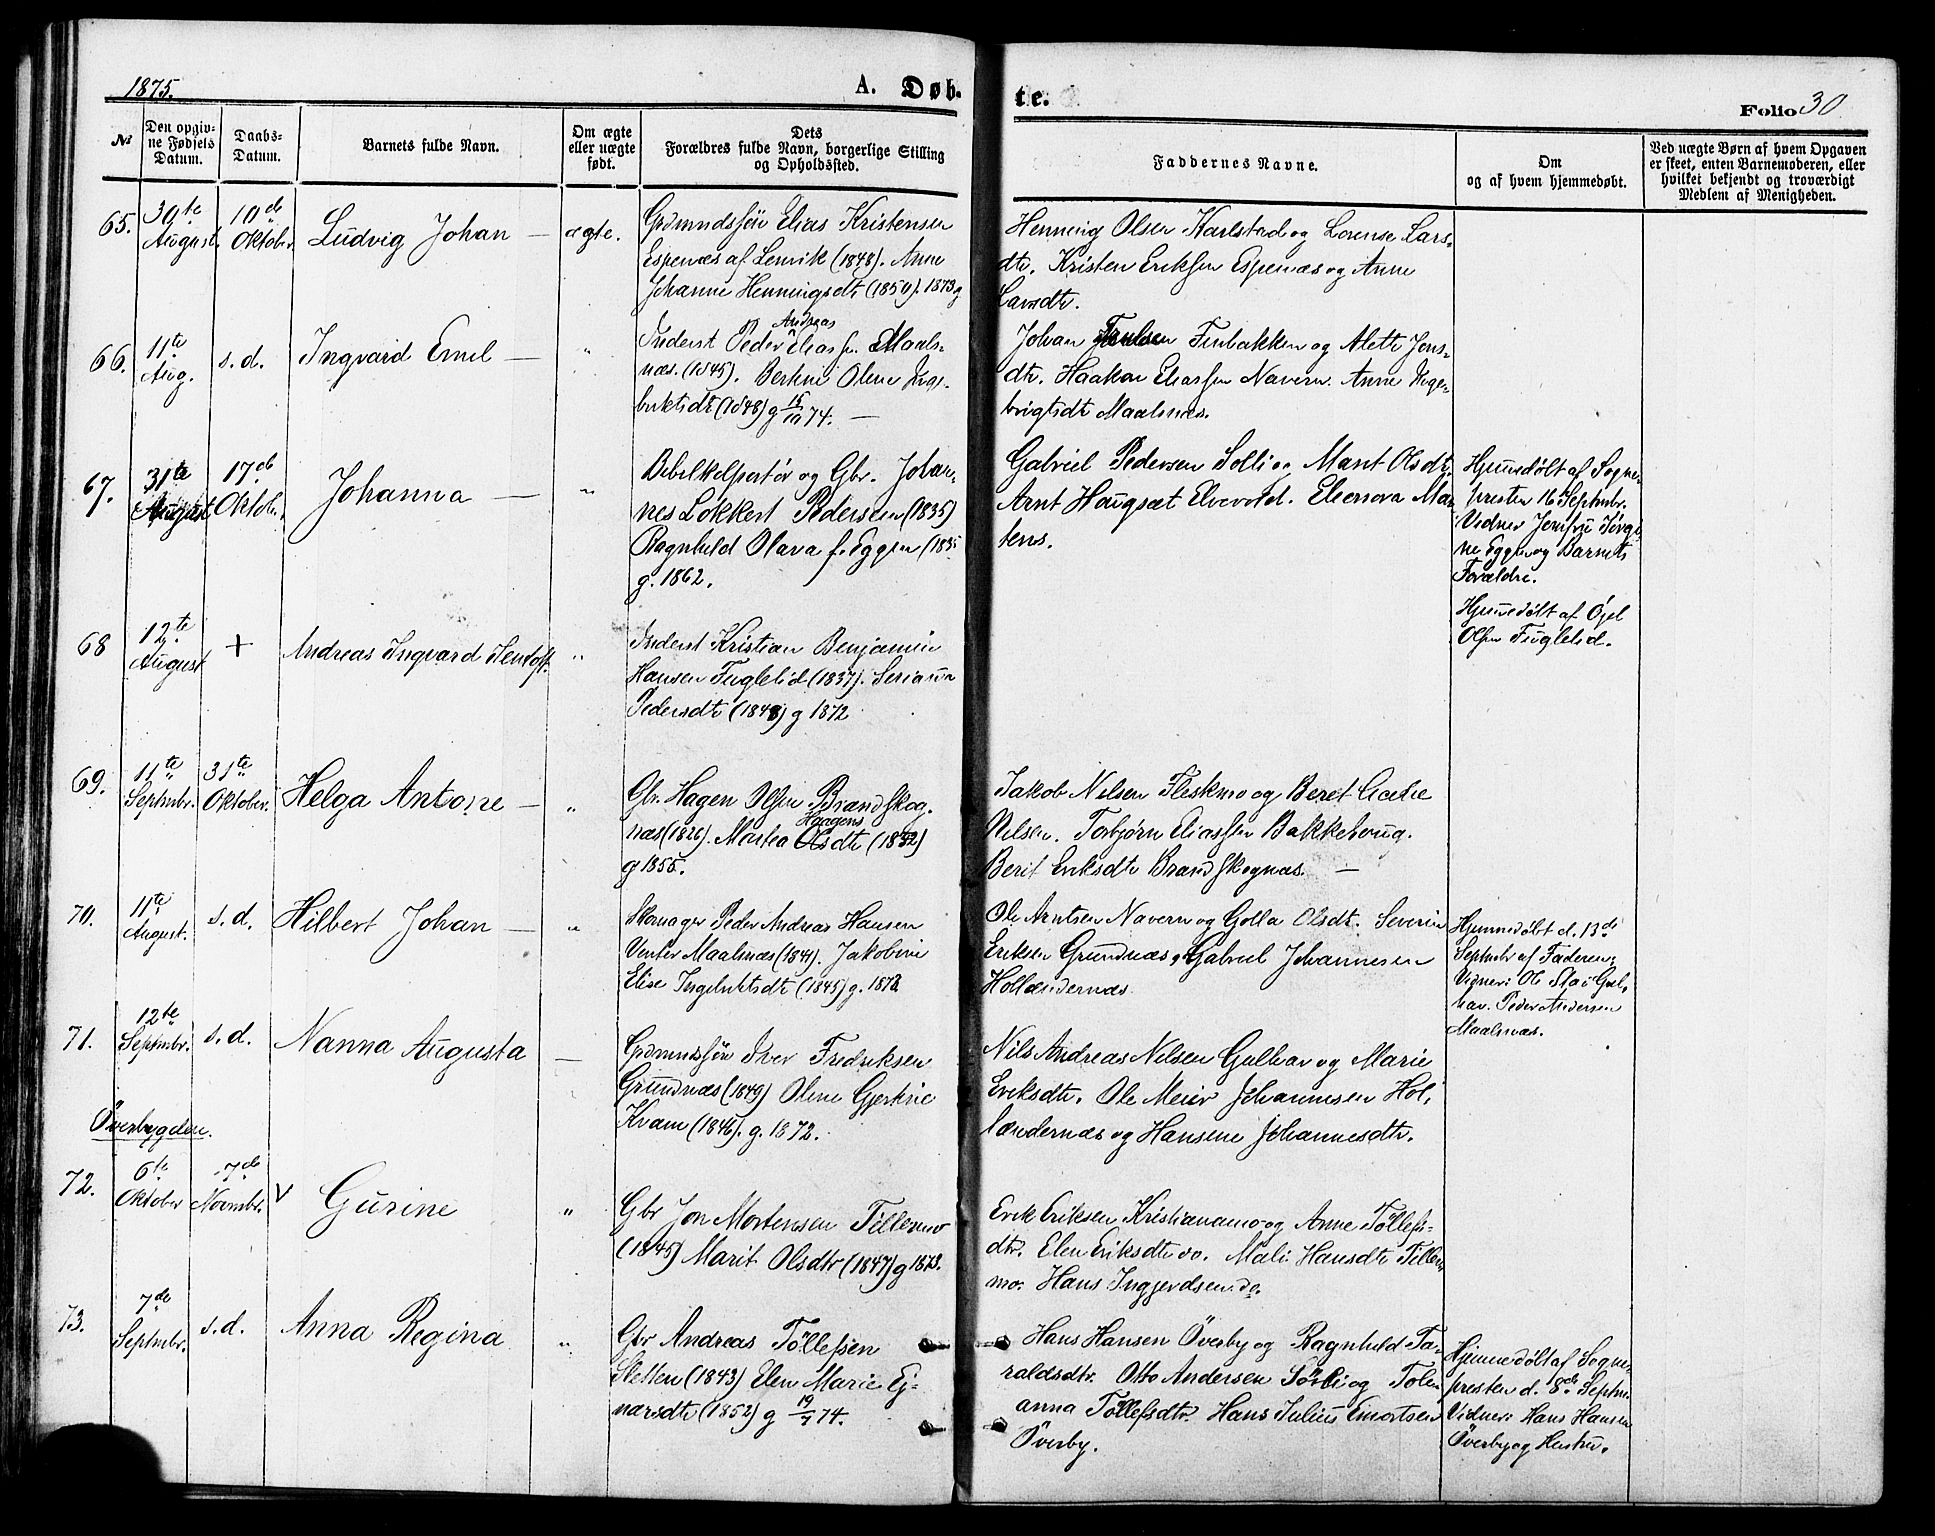 1875.
A. Døb-
te.
Folio 30
№
Den opgiv-
ne Fødsels
Datum.
Daabs-
Datum.
Barnets fulde Navn.
Om ægte
eller uægte
født.
Dets
Forældres fulde Navn, borgerlige Stilling
og Opholdssted.
Faddernes Navne.
Om
og af hvem hjemmedøbt.
Ved uægte Børn af hvem Opgaven
er skeet, enten Barnemoderen, eller
hvilket bekjendt og troværdigt
Medlem af Menigheden.
65.
30te
August
10de
Oktober
Ludvig Johan —
ægte.
Gmdssøn Elias Kristensen
Espenæs af Lenvik (1848). Anne
Johanne Henningsdt. (1850). 1873 g
Henning Olsen Karlstad og Lorense Lars-
dtr. Kristen Eriksen Espenæs og Anne
Larsdtr.
66.
11te
Aug.
s. d.
Ingvard Emil —
"
Andreas
Inderst Peder Eliassen Maals-
næs. (1845). Berthine Oline Inge-
briktsdt. (1848) g 15/10 74. —
Johan Finbakken og Alette Jens-
dtr. Haakon Eliassen Navern. Anne Inge-
brigtsdt Maalsnæs.
67.
31te
August
17de
Oktobr.
Johanna —
"
Bibelkolportør og Gbr. Johan-
nes Løkkert Pedersen (1835)
Ragnhild Olava f. Eggen (1835
g. 1862.
Gabriel Pedersen Solli og Marit Olsdt.
Arnt Haugsæt Elvevold. Eleonora Mar-
tens.
Hjemmedøbt af Sogne-
presten 16 Septembr.
Vidner Jomfru Jørgi-
ne Eggen og Barnets
Forældre.
68
12te
August
+
Andreas Ingvard Hentoff.
"
Inderst Kristian Benjamin
Hansen Fuglelid (1837). Serianna
Pedersdtr (1848) g 1872
Hjemmedøbt af Ojel
Olsen Fuglelid.
69.
11te
Septmbr.
31te
Oktober.
Helga Antone —
"
Gbr. Hagen Olsen Brandskog-
Haagens
næs (1826). Martha Olsdtr (1832)
g 1855.
Jakob Nilsen Fleskmo og Beret
Nilsen. Torbjørn Eliassen Bakkehaug.
Berit Eriksdtr Brandskognæs. —
70.
11te
August.
s. d.
Hilbert Johan —
"
Skomager Peder Andreas Hansen
Venter Maalsnæs (1841). Jakobine
Elise Ingebriktsdtr (1845) g. 1873.
Ole Arntsen Navern og Golla Olsdt. Severin
Eriksen Grundnæs, Gabriel Johannesen
Hollændernæs
Hjemmedøbt d. 13de
Septmbr af Faderen;
Vidner: Ole Moe i Gul-
hav. Peder Andersen
Maalsnæs.
71.
12te
Septmbr.
s. d.
Nanna Augusta
—
"
Gmdssøn Iver Fredriksen
Grundnæs (1849) Oline Gjertine
Kvam (1846). g. 1872.
Nils Andreas Nilsen Gulhav og Marie
Eriksdtr. Ole Meier Johannesen Hol-
lændernæs og Hansine Johannesdtr.
Överbygden.
72.
6te
Oktober
7de
Novmbr.
V
Gurine
"
Gbr Jon Mortensen Tillermo
(1845) Marit Olsdtr (1847) g 1873.
Erik Eriksen Kristianamo og Anne Töllefs-
dtr. Elen Eriksdtr do. Mali Hansdtr Tiller-
mo. Hans Ingjerdsen do.
73.
7de
Septmbr.
s. d.
Anna Regina
"
Gbr Andreas Töllefsen
Sletten (1843) Elen Marie Ej-
narsdtr (1852) g 19/7 74.
Hans Hansen Överby og Ragnhild Ta-
raldsdtr. Otto Andersen Sörli og Tolli-
anna Töllefsdtr. Hans Julius Emertsen
Överby.
Hjemmedøbt af Sogne-
presten d. 8de Septmr.
Vidner: Hans Hansen
Överby og Hustru.